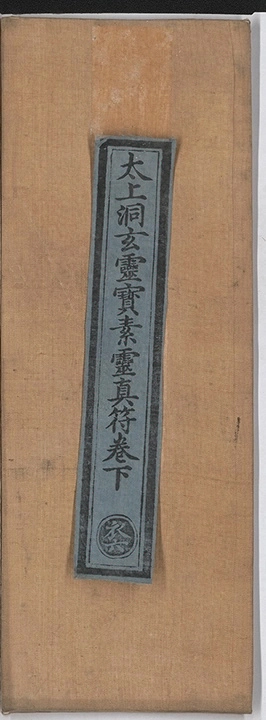 太上洞玄靈寶素靈真符卷下
衣六